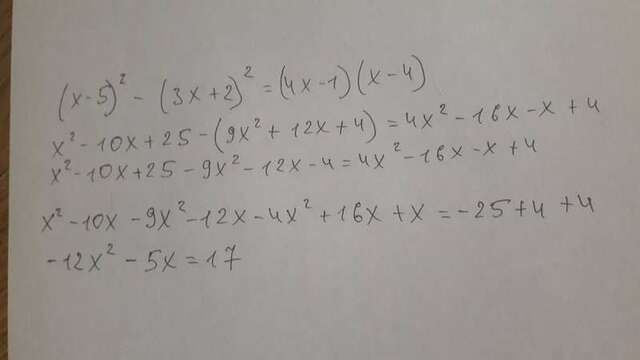 (x-5)² - (3x+2)² = (4x-1)(x-4)
x² - 10x + 25 - (9x² + 12x + 4) = 4x² - 16x - x + 4
x² - 10x + 25 - 9x² - 12x - 4 = 4x² - 16x - x + 4
x² - 10x - 9x² - 12x - 4x² + 16x + x = -25 + 4 + 4
-12x² - 5x = 17